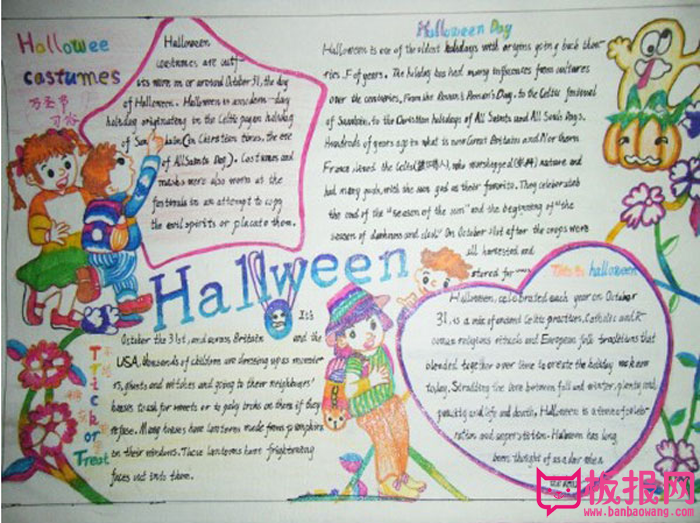 Hallowee
costumes
万圣节
习俗
Halloween
costumes are outf-
its worn on or around October 31, the day
of Halloween. Halloween is a modern-day
holiday originating in the Celtic pagan holiday
of Samhain (in Christian times, the eve
of All Saints Day). Costumes and
masks were also worn at the
festivals in an attempt to copy
the evil spirits or placate them.
Halloween Day
Halloween is one of the oldest holidays with origins going back thou-
of years. The holiday has had many influences from cultures
over the centuries. From the Roman's Pomona's Day, to the Celtic festival
of Samhain, to the Christian holidays of All Saints and All Souls Days.
Hundreds of years ago in what is now Great Britain and Northern
France, lived the Celts. The Celts worshipped nature and
had many gods, with the sun god as their favorite. They celebrated
the end of the "season of the sun" and the beginning of "the
season of darkness and cold." On October 31st after the crops were
all harvested and
stored for
Hallween
It's
October the 31st, and across Britain and the
USA, thousands of children are dressing up as monste-
rs, ghosts and witches and going to their neighbours'
houses to ask for sweets or to play tricks on them if they
refuse. Many houses have lanterns made from pumpkins
on their windows. These lanterns have frightening
faces cut into them.
Trick
or
Treat
This is halloween
Halloween, celebrated each year on October
31, is a mix of ancient Celtic practices, Catholic and R-
oman religious rituals and European folk traditions that
blended together over time to create the holiday we know
today. Straddling the line between fall and winter, plenty and
paucity and life and death, Halloween is a time of celeb-
ration and superstition. Halloween has long
been thought of as a day when
板报网
www.banbaowang.com